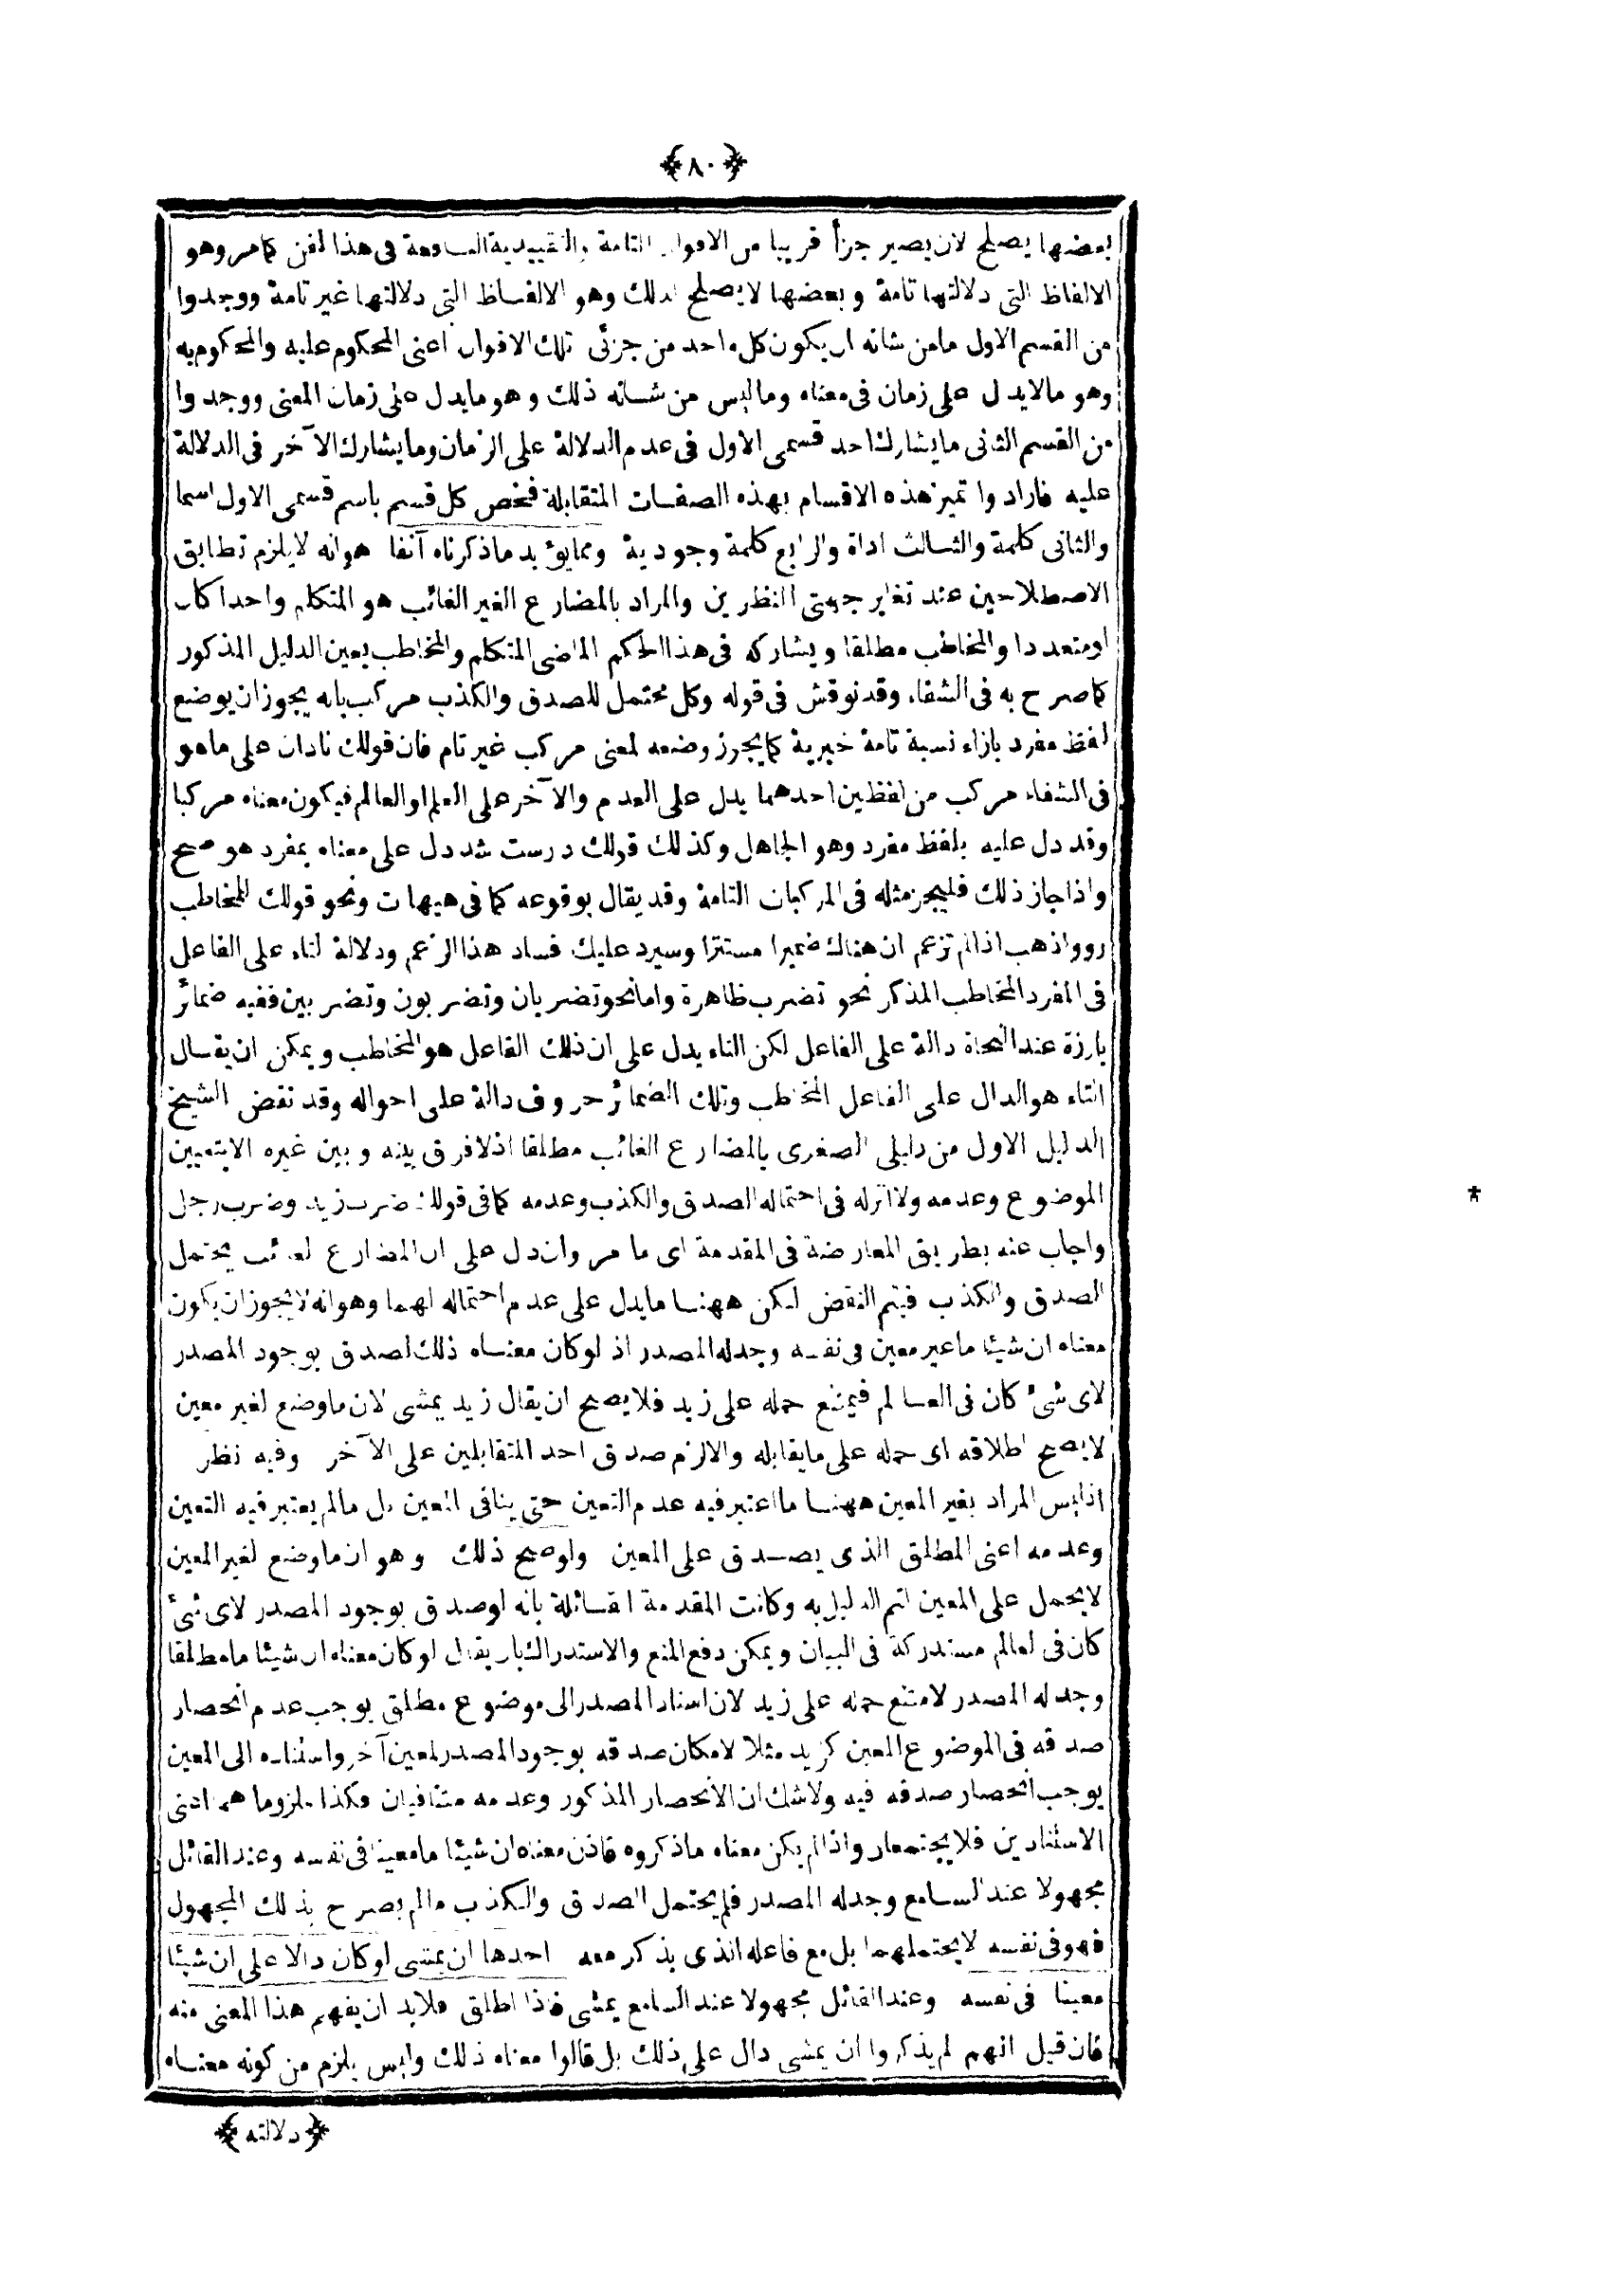 ﴿٨٠﴾
بعضها يصلح لان يصير جزأ قريبا من الاقوال التامة والتقييدية النافعة فى هذا الفن كمامر وهو
الالفاظ التى دلالتها تامة وبعضها لا يصلح لذلك وهو الالفاظ التى دلالتها غير تامة ووجدوا
من القسم الاول مامن شانه ان يكون كل واحد من جزئى تلك الاقوال اعنى المحكوم عليه والمحكوم به
وهو مالايدل على زمان فى معناه وماليس من شانه ذلك وهو مايدل على زمان المعنى ووجدوا
من القسم الثانى مايشارك احد قسمى الاول فى عدم الدلالة على الزمان ومايشارك الآخر فى الدلالة
عليه فارادوا تميز هذه الاقسام بهذه الصفات المتقابلة فخص كل قسم باسم قسمى الاول اسما
والثانى كلمة والثالث اداة والرابع كلمة وجودية ومما يؤيد ماذكرناه آنفا هو انه لايلزم تطابق
الاصطلاحين عند تغاير جهتى النظرين والمراد بالمضارع الغير الغائب هو المتكلم واحدا كان
اومتعددا والمخاطب مطلقا ويشاركه فى هذا الحكم الماضى المتكلم والمخاطب بعين الدليل المذكور
كما صرح به فى الشفاء وقد نوقش فى قوله وكل محتمل للصدق والكذب مركب بانه يجوز ان يوضع
لفظ مفرد بازاء نسبة تامة خبرية كما يجوز وضعه لمعنى مركب غير تام فان قولك نادان على ماهو
فى الشفاء مركب من لفظين احدهما يدل على العدم والآخر على العلم او العالم فيكون معناه مركبا
وقد دل عليه بلفظ مفرد وهو الجاهل وكذلك قولك درست شد دل على معناه بمفرد هو صح
واذا جاز ذلك فليجز مثله فى المركبات التامة وقد يقال بوقوعه كما فى هيهات ونحو قولك للمخاطب
رو واذهب اذالم تزعم ان هناك ضميرا مستترا وسيرد عليك فساد هذا الزعم ودلالة التاء على الفاعل
فى المفرد المخاطب المذكر نحو تضرب ظاهرة واما نحو تضربان وتضربون وتضربين ففيه ضمائر
بارزة عند النحاة دالة على الفاعل لكن التاء يدل على ان ذلك الفاعل هو المخاطب ويمكن ان يقال
التاء هو الدال على الفاعل المخاطب وتلك الضمائر حروف دالة على احواله وقد نقض الشيخ
الدليل الاول من دليلى الصغرى بالمضارع الغائب مطلقا اذ لافرق بينه وبين غيره الابتعيين
الموضوع وعدمه ولا اثر له فى احتماله الصدق والكذب وعدمه كما فى قولك ضرب زيد وضرب رجل
واجاب عنه بطريق المعارضة فى المقدمة اى ما مر وان دل على ان المضارع الغائب يحتمل
الصدق والكذب فيتم النقض لكن ههنا مايدل على عدم احتماله لهما وهو انه لا يجوز ان يكون
معناه ان شيئا ما غير معين فى نفسه وجد له المصدر اذ لو كان معناه ذلك لصدق بوجود المصدر
لاى شئ كان فى العالم فيمتنع حمله على زيد فلا يصح ان يقال زيد يمشى لان ماوضع لغير معين
لا يصح اطلاقه اى حمله على مايقابله والا لزم صدق احد المتقابلين على الآخر وفيه نظر
اذ ليس المراد بغير المعين ههنا ما اعتبر فيه عدم التعين حتى ينافى المعين بل مالم يعتبر فيه التعين
وعدمه اعنى المطلق الذى يصدق على المعين ولو صح ذلك وهو ان ماوضع لغير المعين
لا يحمل على المعين لتم الدليل به وكانت المقدمة القائلة بانه لو صدق بوجود المصدر لاى شئ
كان فى العالم مستدركة فى البيان ويمكن دفع المنع والاستدراك بان يقال لو كان معناه ان شيئا ما مطلقا
وجد له المصدر لامتنع حمله على زيد لان اسناد المصدر الى موضوع مطلق يوجب عدم انحصار
صدقه فى الموضوع المعين كزيد مثلا لامكان صدقه بوجود المصدر لمعين آخر واسناده الى المعين
يوجب انحصار صدقه فيه ولاشك ان الانحصار المذكور وعدمه متنافيان فكذا ملزوما هما اعنى
الاسنادين فلا يجتمعان واذا لم يكن معناه ماذكروه فاذن معناه ان شيئا ما معينا فى نفسه وعند القائل
مجهولا عند السامع وجد له المصدر فلم يحتمل الصدق والكذب مالم يصرح بذلك المجهول
فهو فى نفسه لا يحتملهما بل مع فاعله الذى يذكر معه احدها ان يمشى لو كان دالا على ان شيئا
معينا فى نفسه وعند القائل مجهولا عند السامع يمشى فاذا اطلق فلابد ان يفهم هذا المعنى منه
فان قيل انهم لم يذكروا ان يمشى دال على ذلك بل قالوا معناه ذلك وليس يلزم من كونه معناه
﴿دلالته﴾